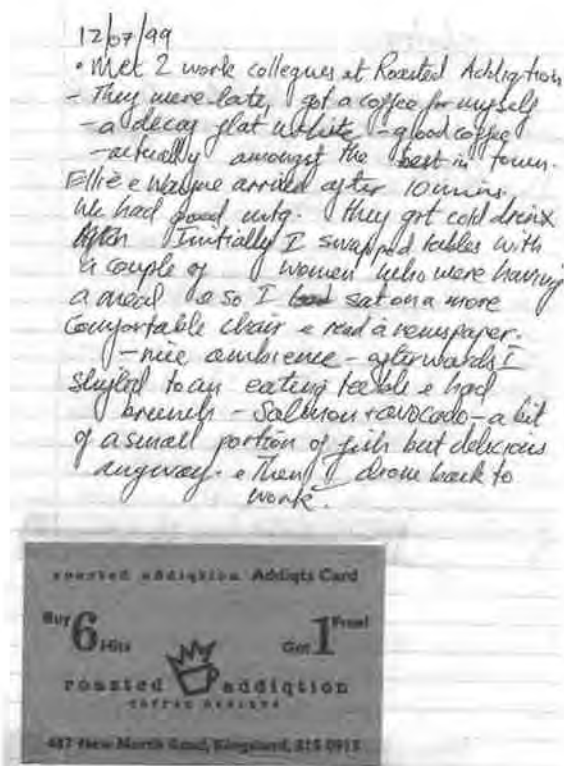 12/07/99
• Met 2 work collegues at Roasted Addiqtion
- They were late, I got a coffee for myself
- a decaf flat white - good coffee
- actually amongst the best in town.
Ellie & Wayne arrived after 10 mins.
We had good mtg. They got cold drinx
Initially I swapped tables with
a couple of women who were having
a meal & so I sat on a more
comfortable chair & read a newspaper.
- nice ambience - afterwards I
shifted to an eating table & had
brunch - Salmon + avocado - a bit
of a small portion of fish but delicious
anyway. & Then I drove back to
work.
roasted addiqtion Addiqts Card
Buy 6 Hits Get 1 Free!
roasted addiqtion
487 New North Road, Kingsland, 815 0913